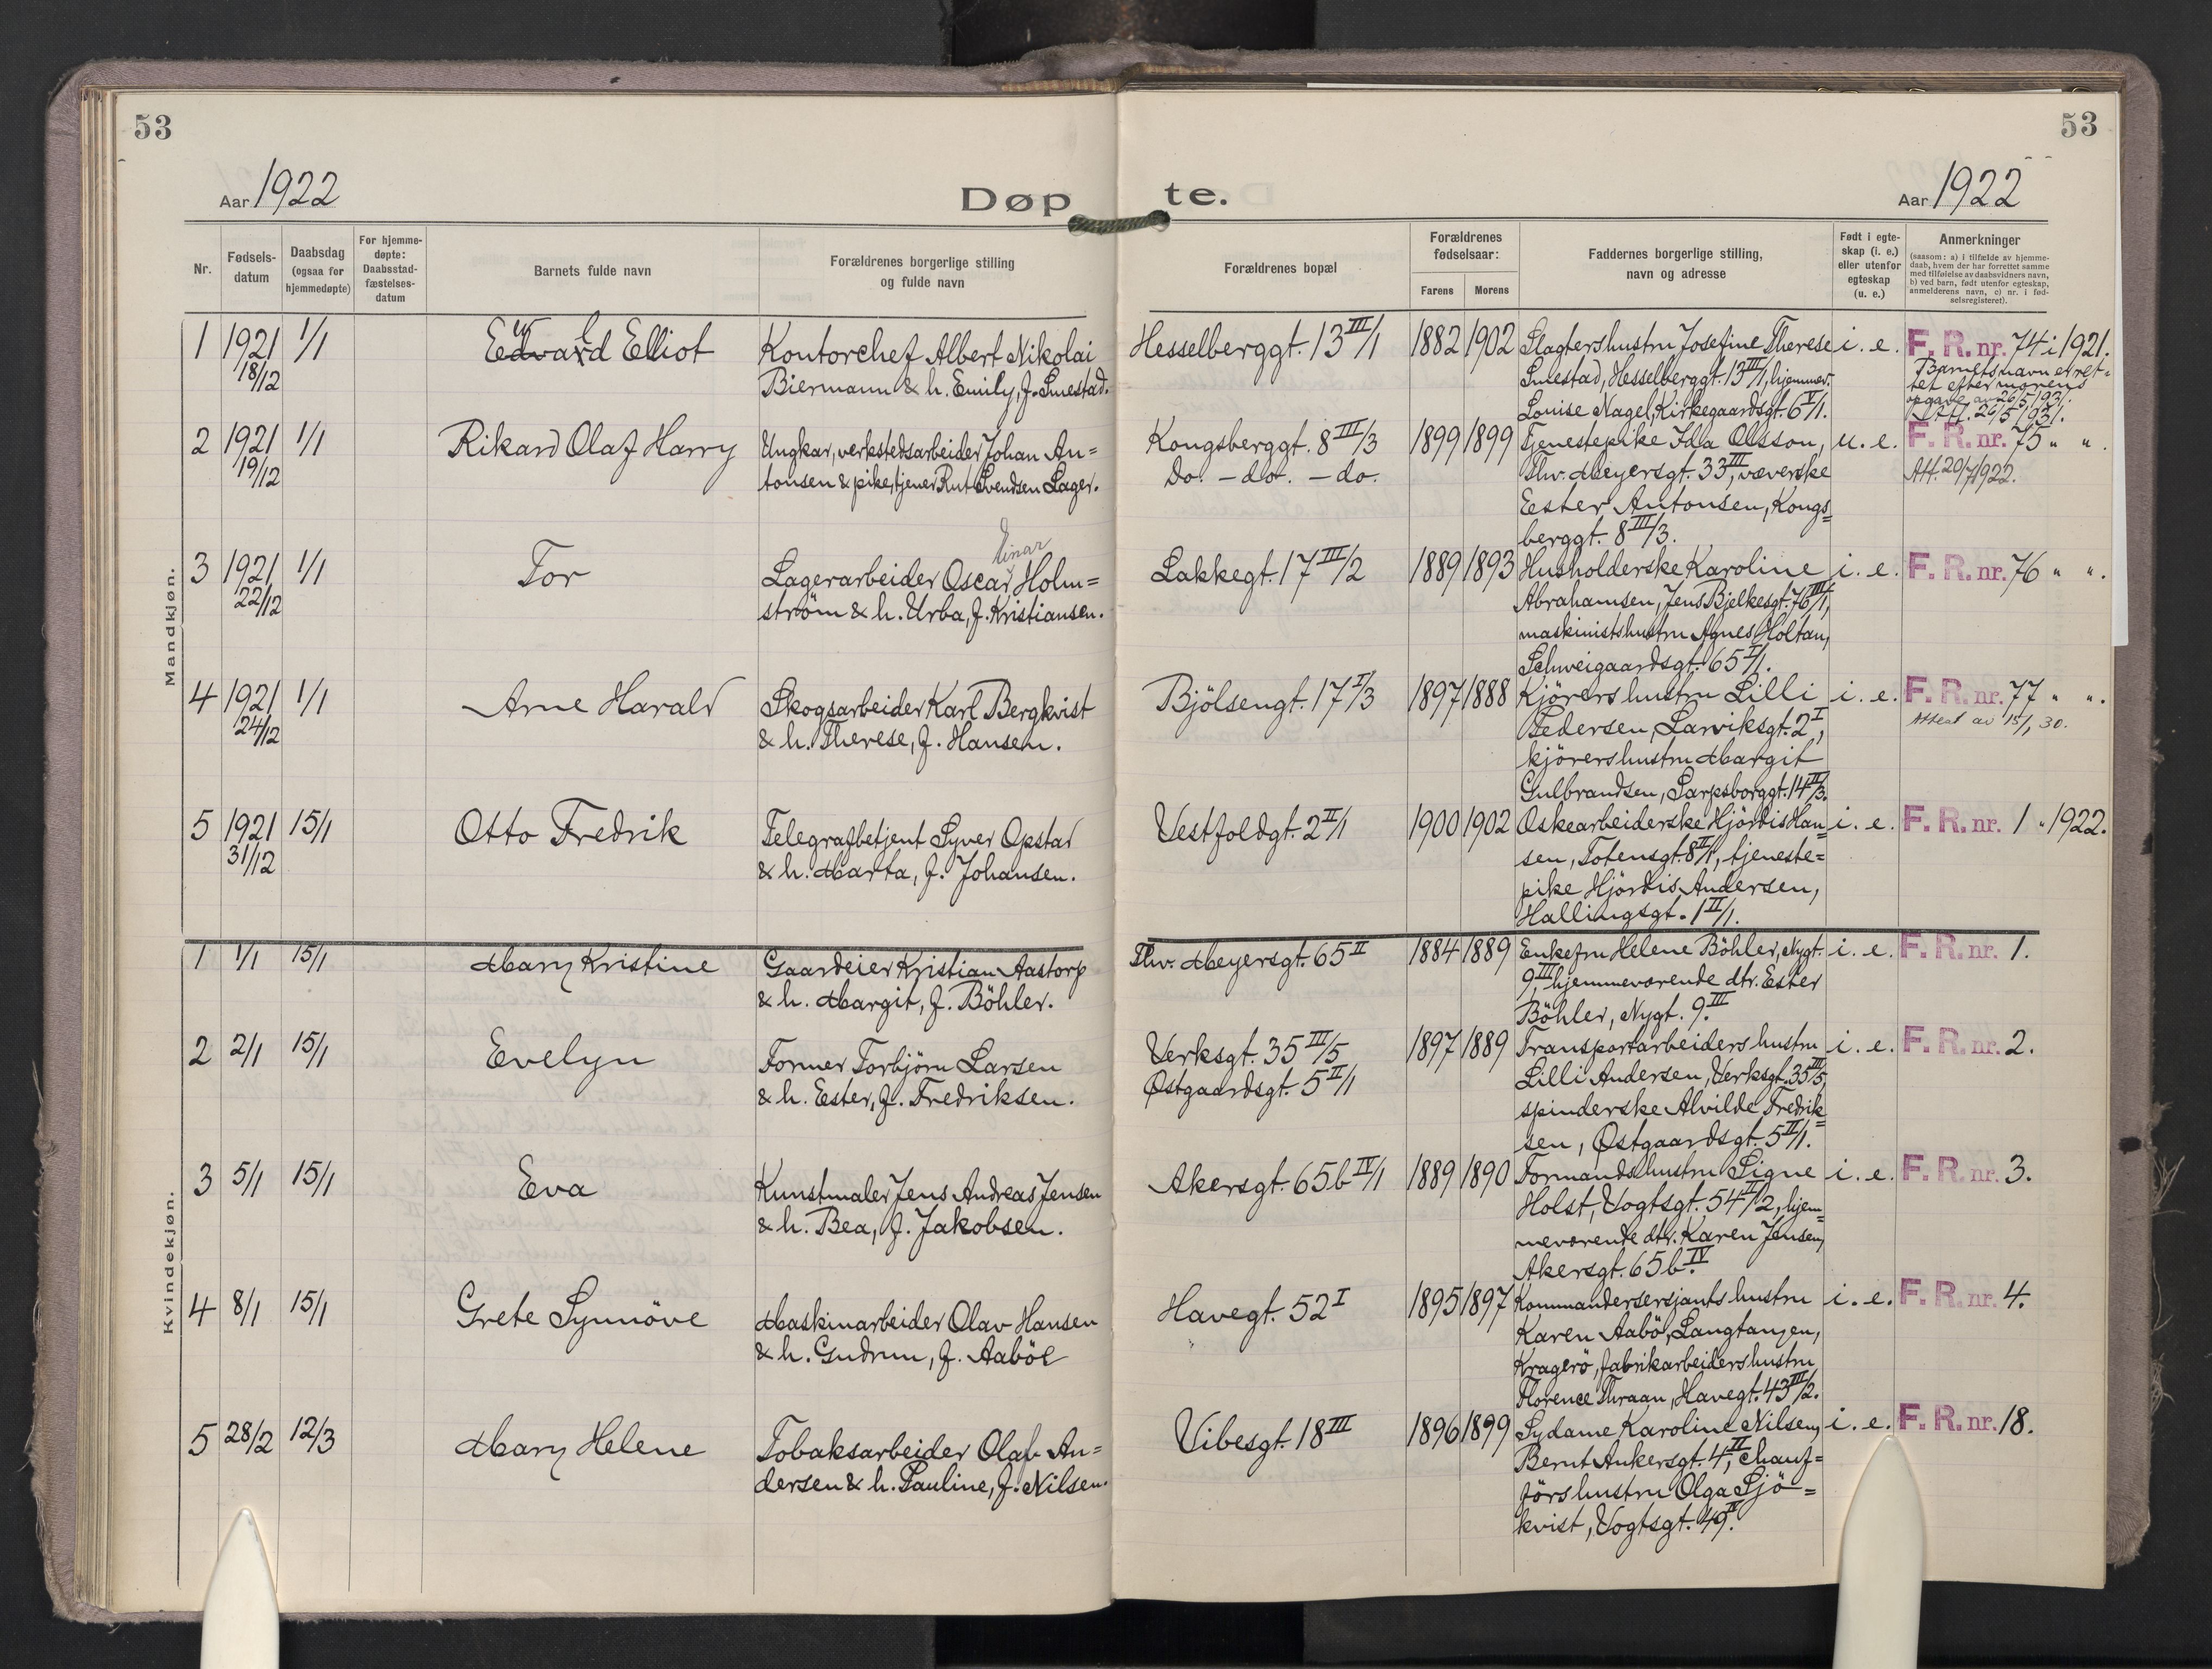 53
53
Aar 1922
Døpte.
Aar 1922
Nr.
Fødsels-
datum
Daabsdag
(ogsaa for
hjemmedøpte)
For hjemme-
døpte:
Daabsstad-
fæstelses-
datum
Barnets fulde navn
Forældrenes borgerlige stilling
og fulde navn
Forældrenes bopæl
Forældrenes
fødselsaar:
Farens
Morens
Faddernes borgerlige stilling,
navn og adresse
Født i egte-
skap (i. e.)
eller utenfor
egteskap
(u. e.)
Anmerkninger
(saasom: a) i tilfælde av hjemme-
daab, hvem der har forrettet samme
med tilføielse av daabsvidners navn,
b) ved barn, født utenfor egteskap,
anmelderens navn, c) nr. i fød-
selsregisteret).
Mandkjøn.
1 1921 1/1
18/12
Edvard Elliot
Kontorchef Albert Nikolai
Biermann & h. Emily, f. Smestad.
Hesselberggt. 13 III/1
1882 1902
Slagtershustru Josefine Therese
Smestad, Hesselberggt. 13 III/1, hjemmev.
Louise Nagel, Kirkegaardsgt. 6 I/1.
i. e.
F. R. nr. 74 i 1921.
Barnets navn er ret-
tet efter morens
opgave av 26/5 1931.
Att. 26/5 1931.
2 1921 1/1
19/12
Rikard Olaf Harry
Ungkar, verkstedsarbeider Johan An=
tonsen & pike, tjener Rut Svendsen Lager.
Kongsberggt. 8 III/3
Do. - do. - do.
1899 1899
Tjenestepike Ida Olsson,
Thv. Meyersgt. 33 III, væverske
Ester Antonsen, Kongs=
berggt. 8 III/3.
u. e.
F. R. nr. 75 " ".
Att. 20/7 1922.
3 1921 1/1
22/12
Tor
Einar
Lagerarbeider Oscar Holm=
ström & h. Urba, f. Kristiansen.
Lakkegt. 17 III/2
1889 1893
Husholderske Karoline
Abrahamsen, Jens Bjelkesgt. 76 III/1,
maskinistshustru Agnes Holtan,
Schweigaardsgt. 65 I/1.
i. e.
F. R. nr. 76 " ".
4 1921 1/1
24/12
Arne Harald
Skogsarbeider Karl Bergkvist
& h. Therese, f. Hansen.
Bjölsengt. 17 I/3
1897 1888
Kjörershustru Lilli
Pedersen, Larviksgt. 2 I,
kjörershustru Margit
Gulbrandsen, Sarpsborggt. 14 II/3.
i. e.
F. R. nr. 77 " ".
Attest av 15/1, 30.
5 1921 15/1
31/12
Otto Fredrik
Telegrafbetjent Syver Opstad
& h. Marta, f. Johansen.
Vestfoldgt. 2 II/1
1900 1902
Æskearbeiderske Hjördis Han=
sen, Totensgt. 8 II/1, tjeneste=
pike Hjördis Andersen,
Hallingsgt. 1 II/1.
i. e.
F. R. nr. 1 " 1922.
Kvindekjøn.
1 1/1 15/1
Mary Kristine
Gaardeier Kristian Aastorp
& h. Margit, f. Böhler.
Thv. Meyersgt. 65 II
1884 1889
Enkefru Helene Böhler, Nygt.
9 III, hjemmeværende dtr. Ester
Böhler, Nygt. 9 III.
i. e.
F. R. nr. 1.
2 2/1 15/1
Evelyn
Former Torbjörn Larsen
& h. Ester, f. Fredriksen.
Verksgt. 35 III/5
Østgaardsgt. 5 II/1
1897 1889
Transportarbeidershustru
Lilli Andersen, Verksgt. 35 III/5,
spinderske Alvilde Fredrik=
sen, Østgaardsgt. 5 II/1.
i. e.
F. R. nr. 2.
3 5/1 15/1
Eva
Kunstmaler Jens Andreas Jensen
& h. Bea, f. Jakobsen.
Akersgt. 65b IV/1
1889 1890
Formandshustru Signe
Holst, Vogtsgt. 54 II/2, hjem=
meværende dtr. Karen Jensen,
Akersgt. 65b IV.
i. e.
F. R. nr. 3.
4 8/1 15/1
Grete Synnöve
Maskinarbeider Olav Hansen
& h. Gudrun, f. Aaböe
Havegt. 52 I
1895 1897
Kommandersersjants hustru
Karen Aaböe, Langtangen,
Kragerö, fabrikarbeidershustru
Florence Thraan, Havegt. 43 III/2.
i. e.
F. R. nr. 4.
5 28/2 12/3
Mary Helene
Tobaksarbeider Olaf An=
dersen & h. Pauline, f. Nilsen.
Vibesgt. 18 III
1896 1899
Sydame Karoline Nilsen,
Bernt Ankersgt. 4 II, chauf=
förshustru Olga Sjö=
kvist, Vogtsgt. 49 II.
i. e.
F. R. nr. 18.